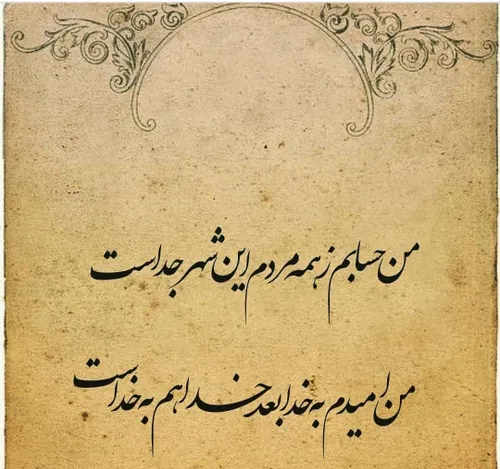 من حسابم ز همه مردم این شهر جداست
من امیدم به خدا بعد خدا هم به خداست